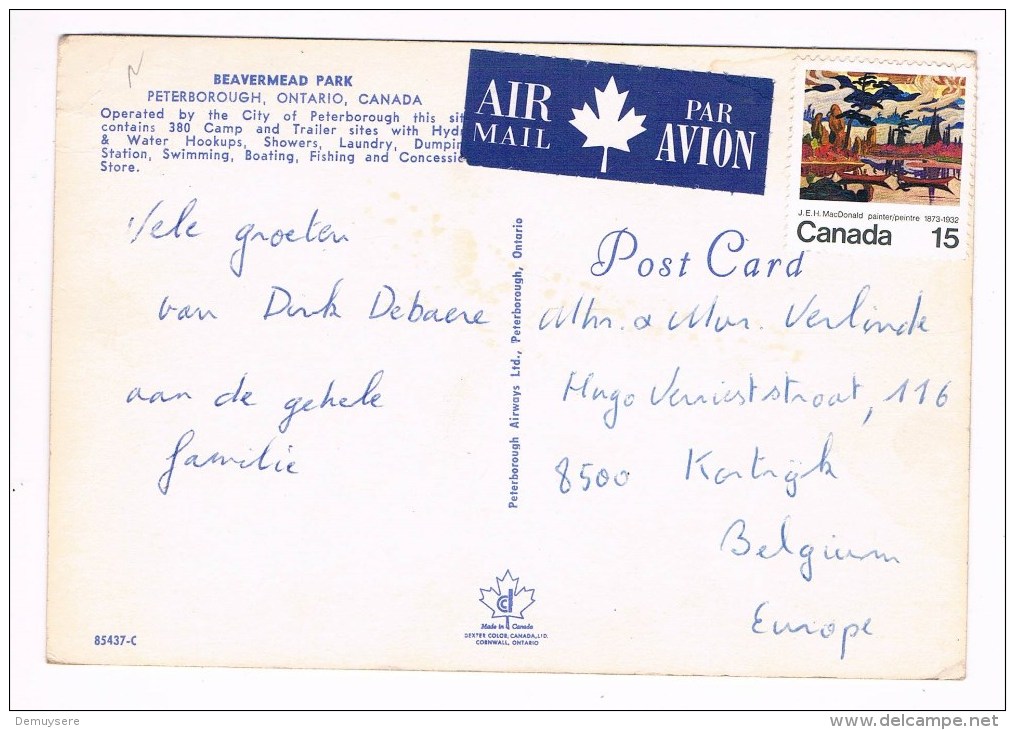 BEAVERMEAD PARK
PETERBOROUGH, ONTARIO, CANADA
Operated by the City of Peterborough this sit
contains 380 Camp and Trailer sites with Hydr
& Water Hookups, Showers, Laundry, Dumpin
Station, Swimming, Boating, Fishing and Concessio
Store.
AIR MAIL
PAR AVION
J.E.H. MacDonald painter/peintre 1873-1932
Canada 15
Post Card
Vele groeten
van Dirk Debaere
aan de gehele
familie
Peterborough Airways Ltd., Peterborough, Ontario
Mhr. & Mvr. Verlinde
Hugo Verrieststraat, 116
8500 Kortrijk
Belgium
Europe
85437-C
Made in Canada
DEXTER COLOR, CANADA, LTD.
CORNWALL, ONTARIO
Demuysere
delcampe.net